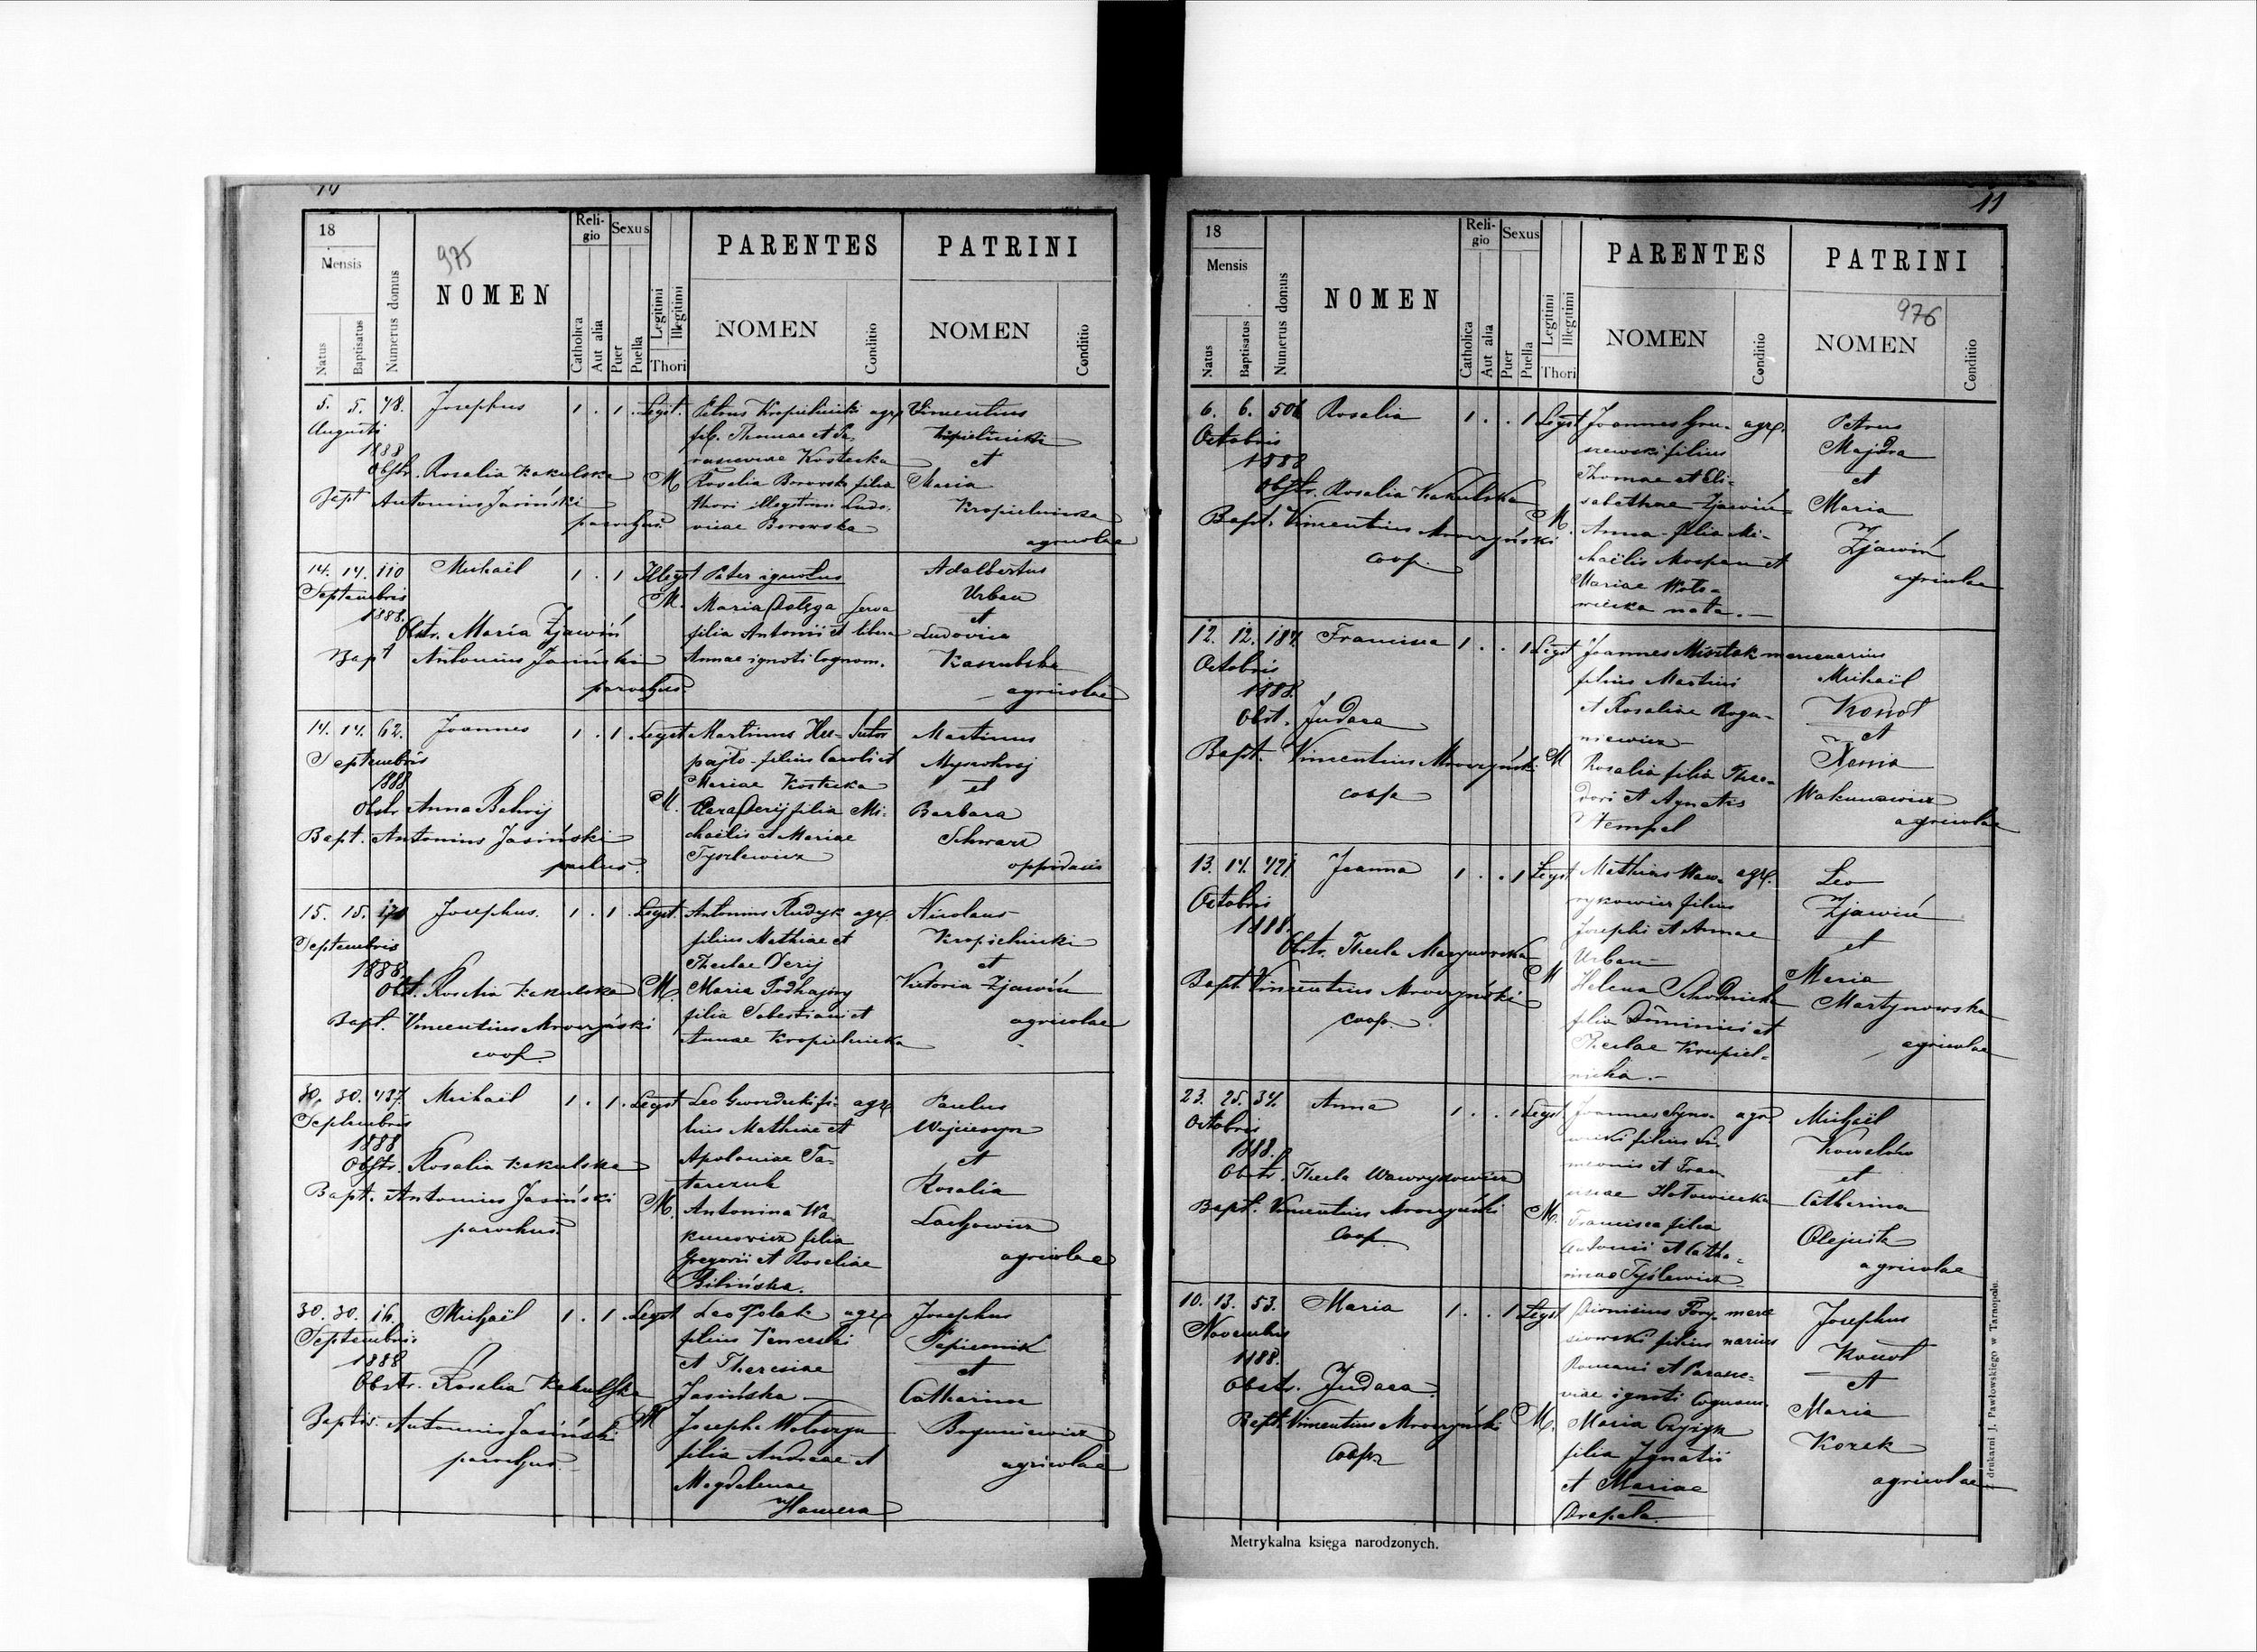 975
18
Mensis
Natus
Baptisatus
Numerus domus
NOMEN
Religio
Catholica
Aut alia
Sexus
Puer
Puella
Legitimi
Illegitimi
Thori
PARENTES
NOMEN
Conditio
PATRINI
NOMEN
Conditio
5. 5. 78. Josephus 1 . 1 . Legit.
Augusti
1888
Obstr. Rosalia Kakulska
Bapt Antonius Jasiński
parochus.
Petrus Kropielnicki agr.
fil. Thomae et Pa-
rasceviae Kostecka
M. Rosalia Borowsk filia
thori illegitimi Ludo-
vicae Borowska
Vincentius
Kropielnicki
et
Maria
Kropielnicka
agricolae
14. 14. 110 Michaël 1 . 1 Illegit
Septembris
1888.
Obstr. Maria Zjawiń
Bapt Antonius Jasiński
parochus
Pater ignotus
M. Maria serva
filia Antonii et libera
Annae ignoti Cognom.
Adalbertus
Urban
et
Ludovica
Kaszubska
agricolae
14. 14. 62. Joannes 1 . 1 . Legit
Septembris
1888
Obstr Anna
Bapt. Antonius Jasiński
Martinus Her- Sutor
pajło filius Caroli et
Mariae Kostecka
M. filia Mi-
chaëlis et Mariae
Tyszlewicz
Martinus
et
Barbara
Schwarz
15. 15. Josephus. 1 . 1 . Legit.
Septembris
1888
Obst. Rosalia Kakulska
Bapt. Vincentius Mroczyński
coop.
Antonius Rudyk agr.
filius Mathiae et
Theclae Derij
M. Maria Podhajny
filia Sebestiani et
Annae Kropielnicka
Nicolaus
Kropielnicki
et
Victoria Zjawiń
agricolae
30. 30. 437. Michaël 1 . 1 . Legit
Septembris
1888
Obstr. Rosalia Kakulska
Bapt. Antonius Jasiński
parochus
Leo fi- agr
lius Mathiae et
Apoloniae Ta-
tarczuk
M. Antonina Wa-
kunowicz filia
Gregorii et Rosaliae
Bilińska.
Paulus
Wojcieszyn
et
Rosalia
Lachowicz
agricolae
30. 30. 16. Michaël 1 . 1 . Legit
Septembris
1888
Obstr. Rosalia Kakulska
Baptis. Antonius Jasiński
parochus.
Leo Polak agr
filius Venceslai
et Theresiae
Jasińska
M Josepha Wołoszyn
filia Andreae et
Magdalenae
Hamera
Josephus
et
Catharina
Boguniewicz
agricolae
11
18
Mensis
Natus
Baptisatus
Numerus domus
NOMEN
Religio
Catholica
Aut alia
Sexus
Puer
Puella
Legitimi
Illegitimi
Thori
PARENTES
NOMEN
Conditio
PATRINI
976
NOMEN
Conditio
6. 6. 506 Rosalia 1 . . 1 Legit
Octobris
1888
Obstr. Rosalia Kakulska
Bapt. Vincentius Mroczyński
coop.
Joannes Gru- agr.
szewski filius
Thomae et Eli-
sabethae Zjawiń
M. Anna filia Mi-
chaëlis Mospan et
Mariae Woło-
wiecka nata.
Petrus
Majdra
et
Maria
Zjawiń
agricolae
12. 12. 187. Francisca 1 . . 1 Legit
Octobris
1888.
Obst. Judaea
Bapt. Vincentius Mroczyński
coop
Joannes Misztak mercenarius
filius Martini
et Rosaliae Bogu-
niewicz
M Rosalia filia Theo-
dori et Agnetis
Stempel
Michaël
Konot
et
Xenia
Wakunowicz
agricolae
13. 14. 421. Joanna 1 . . 1 Legit
Octobris
1888.
Obstr. Thecla Martynowska
Bapt Vincentius Mroczyński
coop.
Mathias Waw- agr.
rykowicz filius
Josephi et Annae
Urban
M Helena Schodnicka
filia Dominici et
Theclae Kropiel-
nicka.
Leo
Zjawiń
et
Maria
Martynowska
agricolae
23. 25. 34. Anna 1 . . 1 Legit
Octobris
1888.
Obstr. Thecla Wawrykowicz
Bapt. Vincentius Mroczyński
coop
Joannes agr
filius Si-
meonis et Fran-
ciscae Hołowiecka
M. Francisca filia
Antonii et Catha-
rinae Tyślewicz
Michaël
Kowalów
et
Catharina
Olejnik
agricolae
10. 13. 53. Maria 1 . . 1 Legit
Novembris
1888.
Obstr. Judaea.
Bapt. Vincentius Mroczyński
coop
Dionisius merce
filius narius
Romani et Parasce-
viae ignoti Cognom.
M. Maria
filia Ignatii
et Mariae
Drapała.
Josephus
Konot
et
Maria
Kozek
agricolae
Metrykalna księga narodzonych.
drukarni J. Pawłowskiego w Tarnopolu.